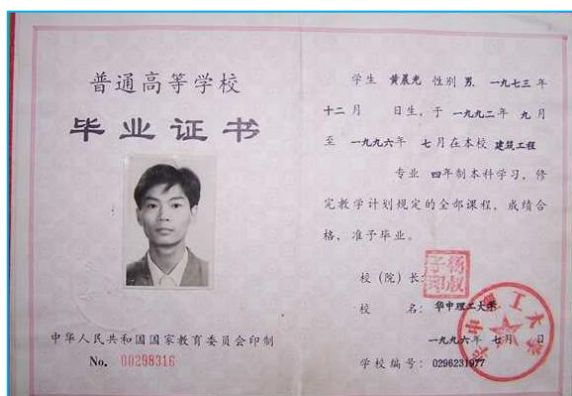 普通高等学校
毕业证书
中华人民共和国国家教育委员会印制
No. 00298316
学生 黄晨光 性别 男, 一九七三 年
十二 月 日生, 于 一九九二 年 九 月
至 一九九六 年 七 月在本校 建筑工程
专业 四 年制本科学习, 修
完教学计划规定的全部课程, 成绩合
格, 准予毕业。
校（院）长:
杨叔子印
校 名: 华中理工大学
一九九六 年 七 月 日
学校编号: 0296231977